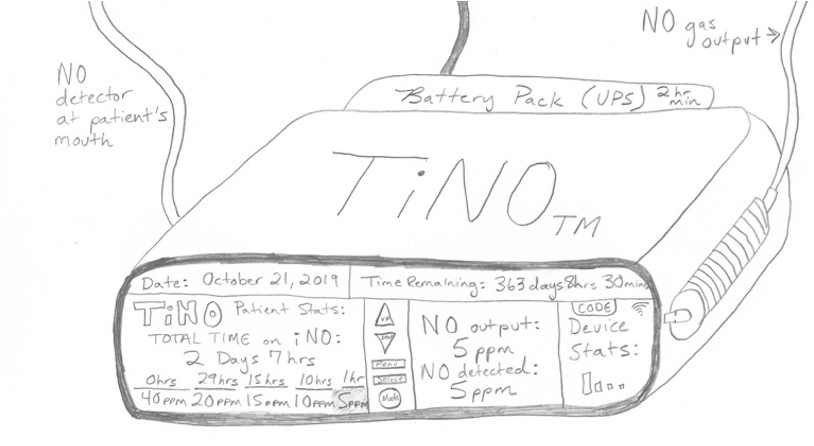 NO
detector
at patient's
mouth
NO gas
output →
Battery Pack (UPS) 2 hr min
TiNO TM
Date: October 21, 2019
Time Remaining: 363 days 8hrs 30mins
TiNO Patient Stats:
TOTAL TIME on iNO:
2 Days 7 hrs
0hrs 29hrs 15hrs 10hrs 1hr
40ppm 20ppm 15ppm 10ppm 5ppm
UP
Menu
Select
Mode
NO output:
5 ppm
NO detected:
5 ppm
CODE
Device
Stats: